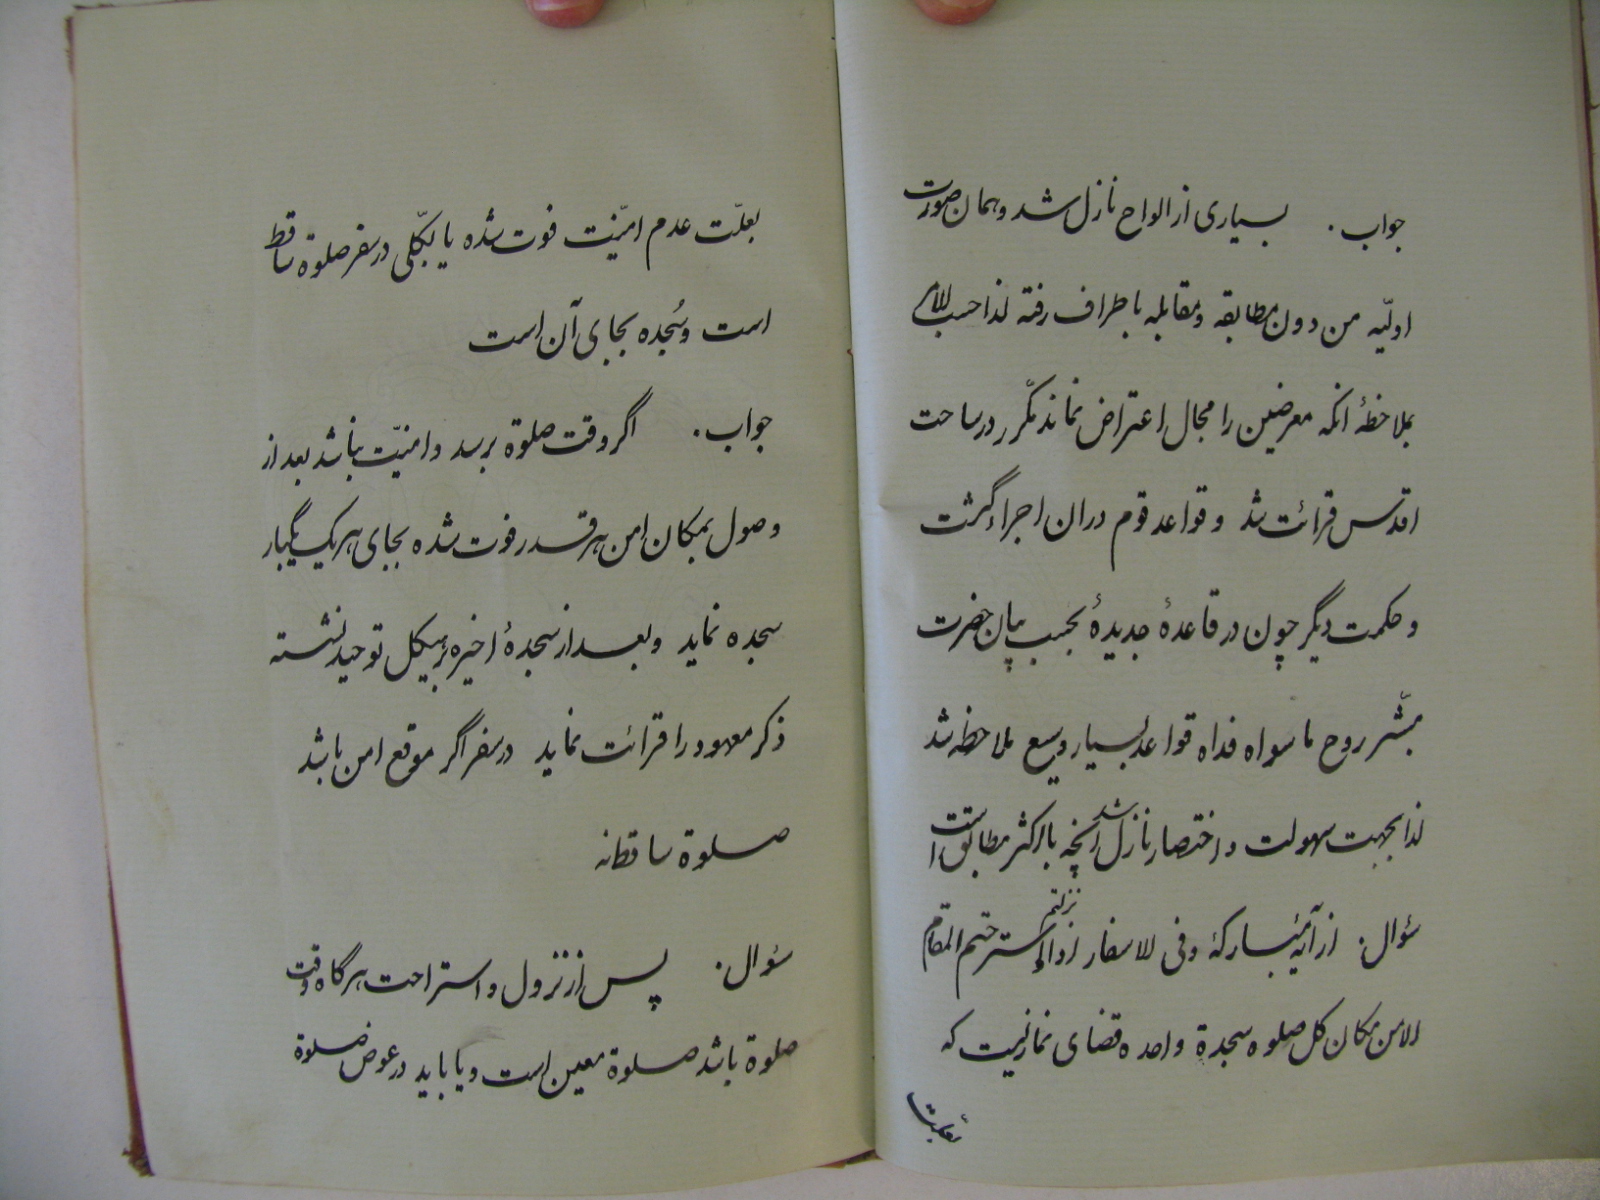 جواب . بسیاری از الواح نازل شد و همان صورت
اولیّه من دون مطابقه و مقابله باطراف رفته لذا حسب الامر
بملاحظهٔ انکه معرضین را مجال اعتراض نماند مکّرر در ساحت
اقدس قرائت شد و قواعد قوم در ان اجراء گشت
و حکمت دیگر چون در قاعدهٔ جدیدهٔ بحسب بیان حضرت
مبشّر روح ما سواه فداه قواعد بسیار وسیع ملاحظه شد
لذا بجهت سهولت و اختصار نازل شد انچه با اکثر مطابق است
سؤال . از آیهٔ مبارکهٔ و فی الاسفار اذا نزلتم و استرحتم المقام
الامن مکان کل صلوه سجدة واحده قضای نمازیست که
بعلت
بعلّت عدم امنّیت فوت شده یا بکلّی در سفر صلوة ساقط
است و سُجده بجای آن است
جواب . اگر وقت صلوة برسد و امنیّت نباشد بعد از
وصول بمکان امن هر قدر فوت شده بجای هر یک یکبار
سجده نماید و بعد از سجدهٔ اخیره بر هیکل توحید نشسته
ذکر معهود را قرائت نماید در سفر اگر موقع امن باشد
صلوة ساقط نه
سؤال . پس از نزول و استراحت هر گاه وقت
صلوة باشد صلوة معین است و یا باید در عوض صلوة